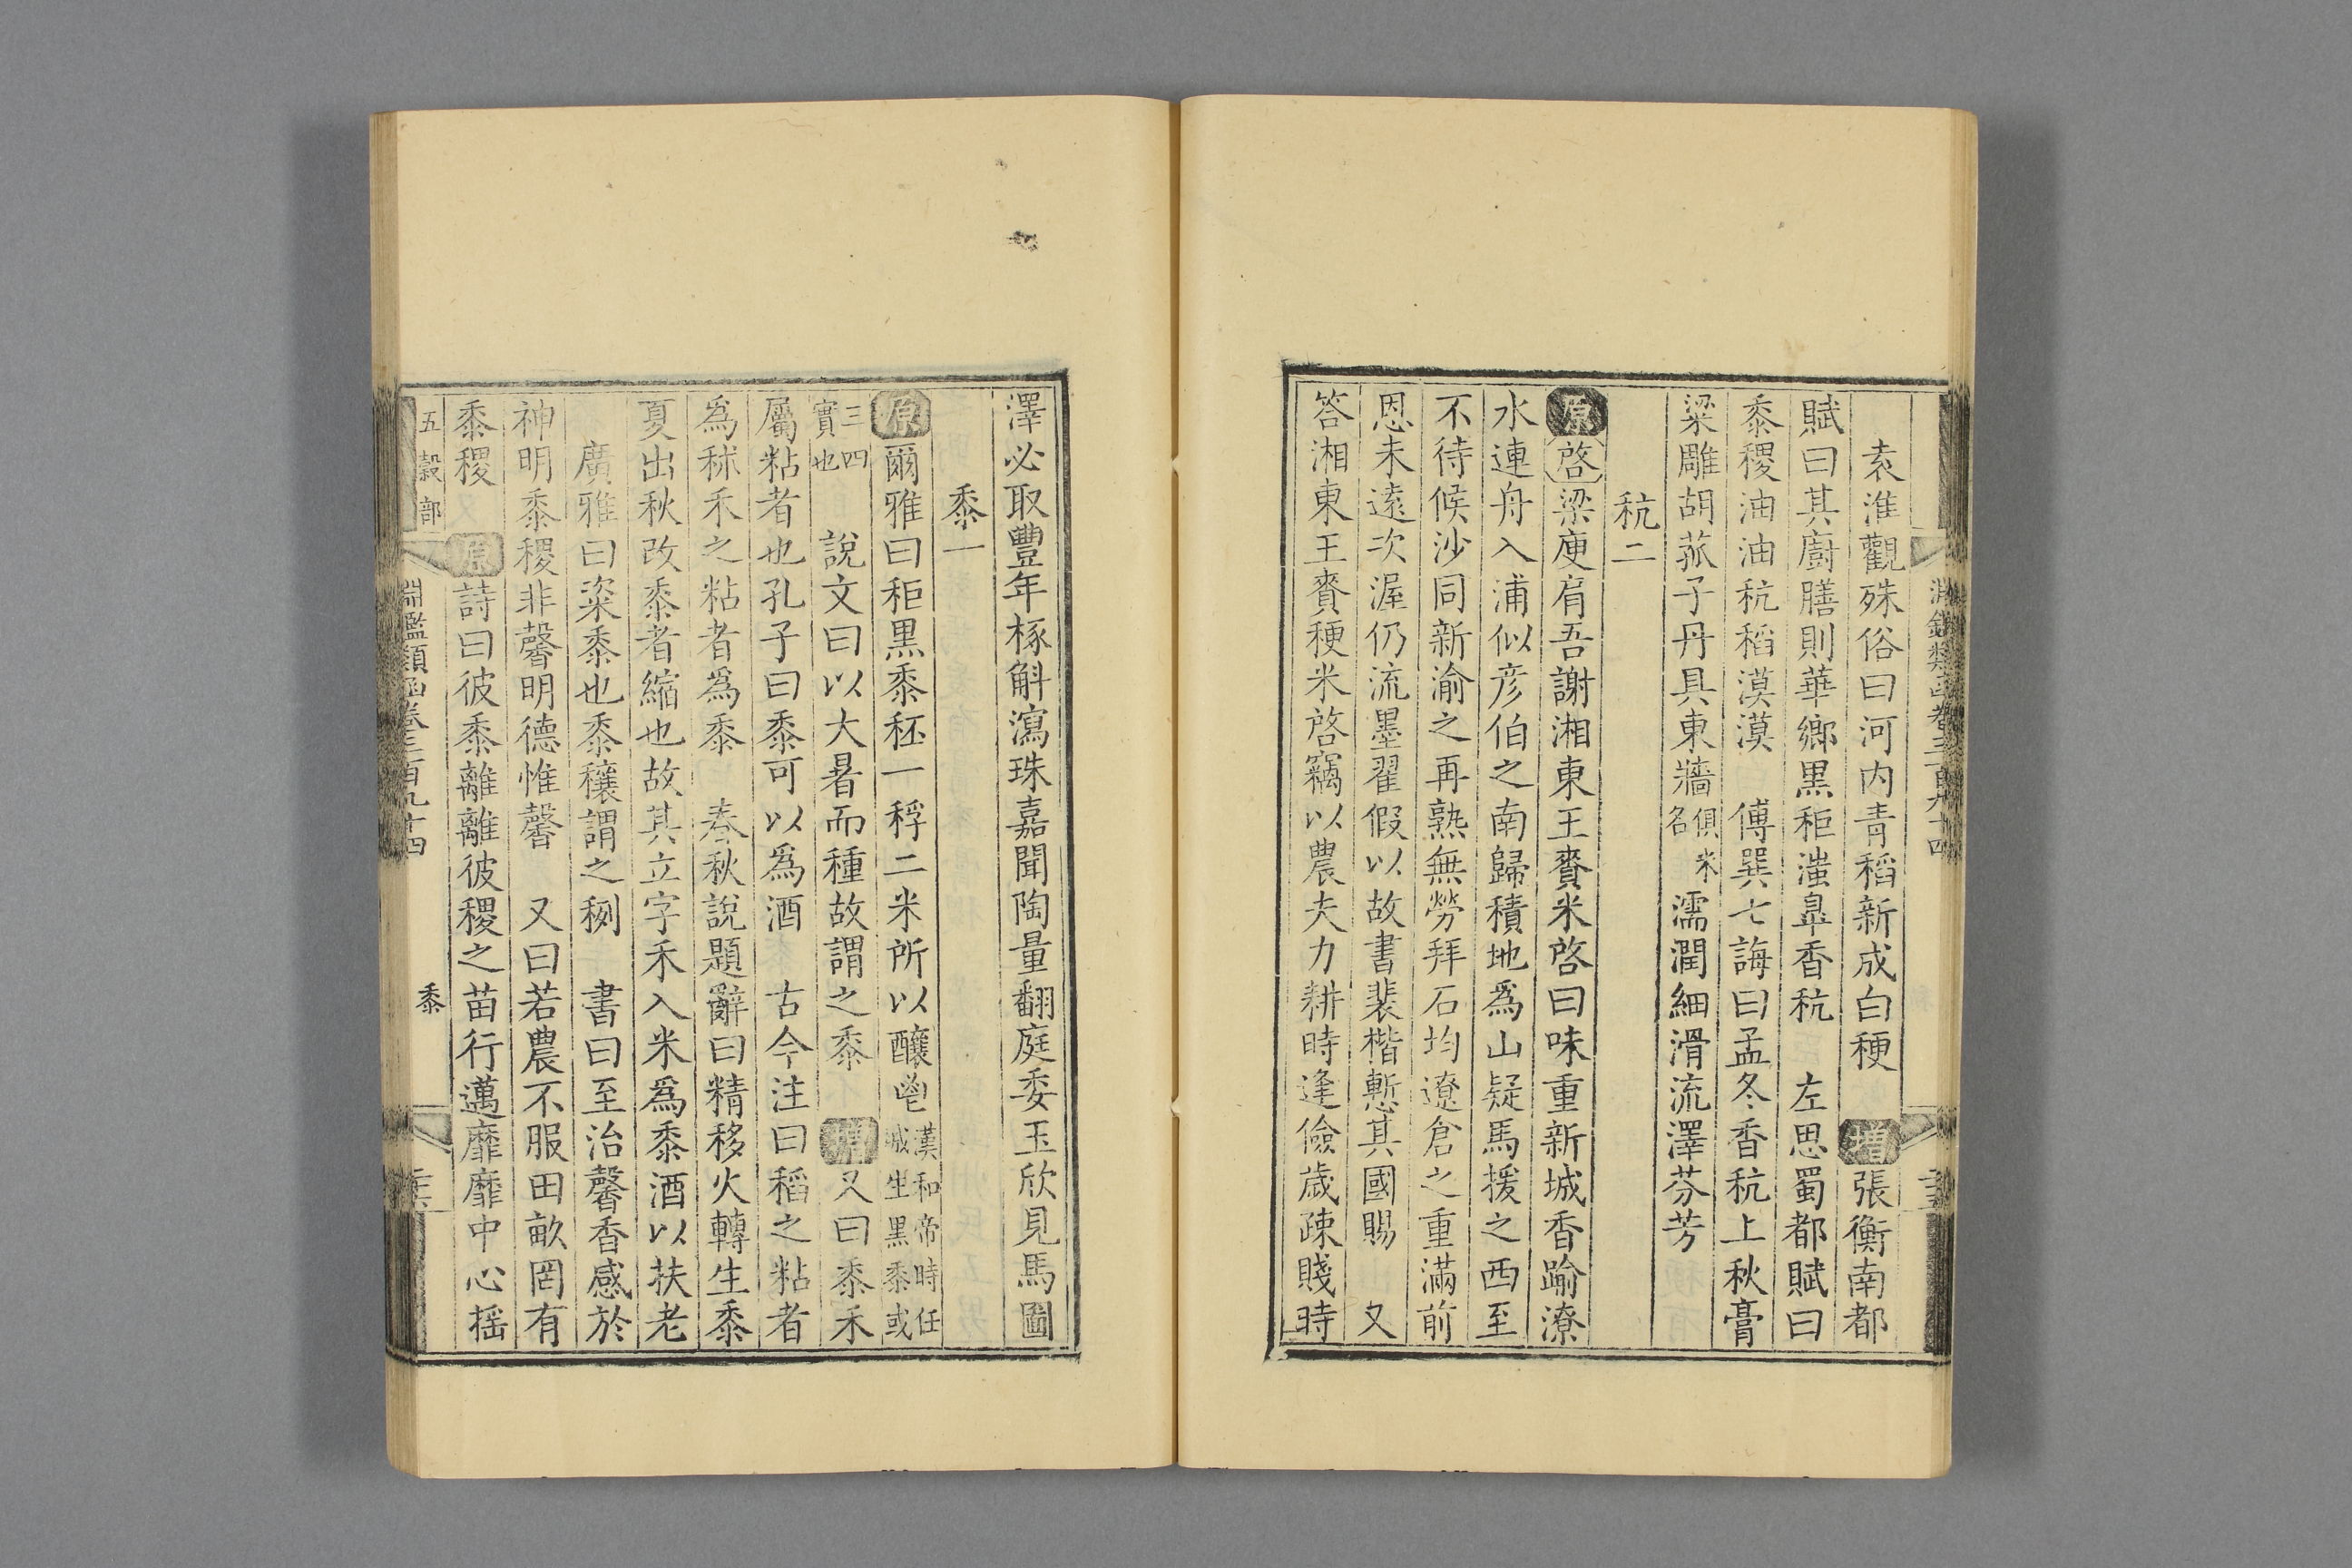 淵鑑類函卷三百九十四
袁淮觀殊俗曰河內青稻新成白粳 增 張衡南都
賦曰其廚膳則華鄉黑秬滍臯香秔 左思蜀都賦曰
黍稷油油秔稻漠漠 傅巽七誨曰孟冬香秔上秋膏
粱雕胡菰子丹具東牆俱米名濡潤細滑流澤芬芳
秔二
原 啓 梁庾肩吾謝湘東王賚米啓曰味重新城香踰潦
水連舟入浦似彥伯之南歸積地爲山疑馬援之西至
不待候沙同新渝之再熟無勞拜石均遼倉之重滿前
恩未遠次渥仍流墨翟假以故書裴楷慙其國賜 又
答湘東王賚粳米啓竊以農夫力耕時逢儉歲疎賤時
澤必取豐年椓斛瀉珠嘉聞陶量翻庭委玉欣見馬圖
黍一
原 爾雅曰秬黑黍秠一稃二米所以釀鬯漢和帝時任城生黑黍或
三四實也 說文曰以大暑而種故謂之黍 增 又曰黍禾
屬粘者也孔子曰黍可以爲酒 古今注曰稻之粘者
爲秫禾之粘者爲黍 春秋說題辭曰精移火轉生黍
夏出秋改黍者縮也故其立字禾入米爲黍酒以扶老
廣雅曰粢黍也黍穰謂之䅀 書曰至治馨香感於
神明黍稷非馨明德惟馨 又曰若農不服田畝罔有
黍稷 原 詩曰彼黍離離彼稷之苗行邁靡靡中心搖
五穀部 淵鑑類函卷三百九十四 黍